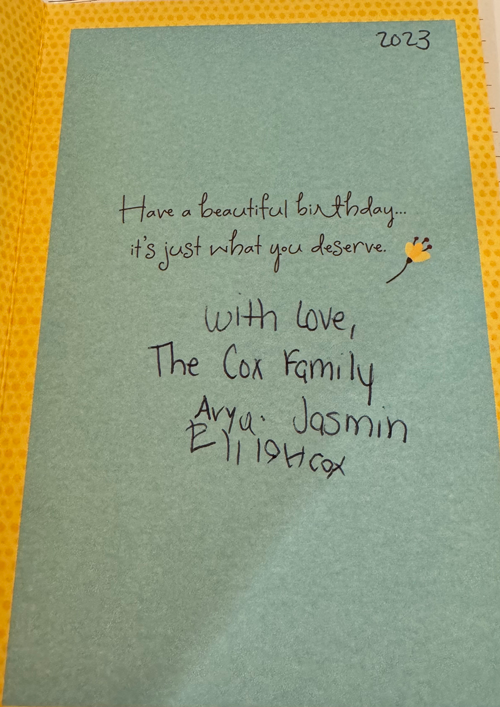 2023
Have a beautiful birthday...
it's just what you deserve.
with love,
The Cox Family
Arya. Jasmin
Elliott Cox